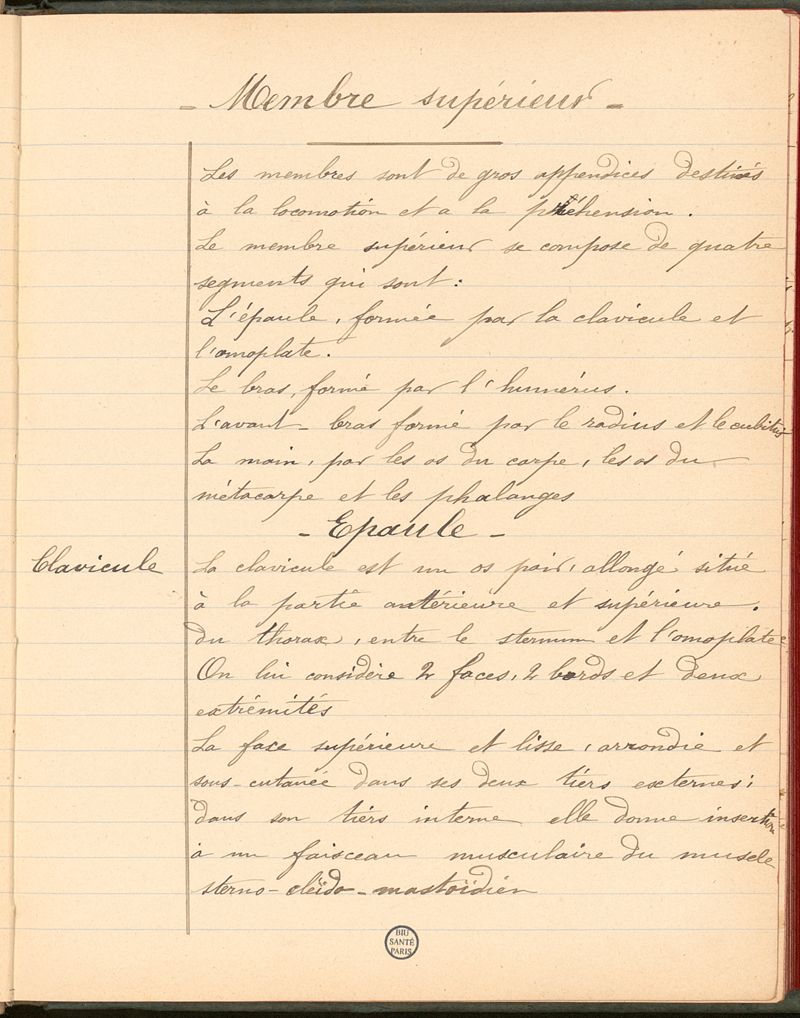 - Membre supérieur -
Les membres sont de gros appendices destinés
à la locomotion et a la préhension.
Le membre supérieur se compose de quatre
segments qui sont :
L'épaule, formée par la clavicule et
l'omoplate.
Le bras, formé par l'humérus.
L'avant-bras formé par le radius et le cubitus
La main, par les os du carpe, les os du
métacarpe et les phalanges
- Epaule -
Clavicule
La clavicule est un os pair, allongé situé
à la partie antérieure et supérieure.
du thorax, entre le sternum et l'omoplate
On lui considère 2 faces, 2 bords et deux
extrémités
La face supérieure et lisse, arrondie et
sous-cutanée dans ses deux tiers externes ;
dans son tiers interne elle donne insertion
à un faisceau musculaire du muscle
sterno-cleïdo-mastoïdien
BIU
SANTÉ
PARIS